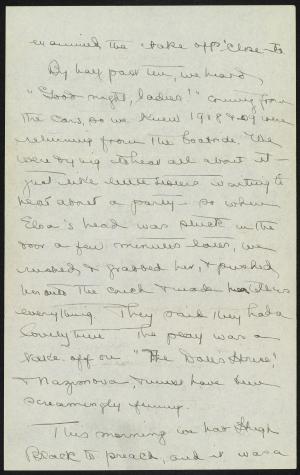 examined, the "take offs" close to
By half past ten, we heard,
"Good night, ladies!" coming from
the cars, so we knew 1908 & 09 were
returning from the boatride. We
were dying to hear all about it -
just like little sisters waiting to
hear about a party - so when
Elsa's head was stuck in the
door a few minutes later, we
rushed & grabbed her, & pushed
her onto the couch & made her tell us
everything. They said they had a
lovely time. The play was a
take off on "The Doll's House,"
& Nazimova, & must have been
screamingly funny.
This morning we had Hugh
Black to preach, and it was a